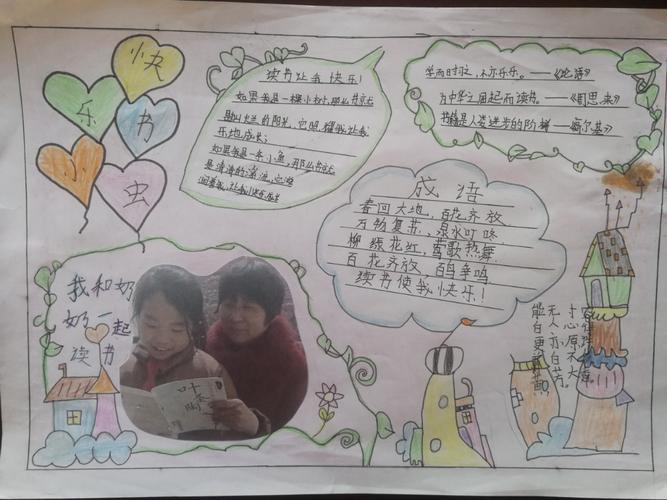 快
乐
书
小
虫
读书让我快乐!
如果我是一棵小树,那么书就是
灿烂的阳光,它照耀我让我
乐地成长;
如果我是一条小鱼,那么书就
是清清的溪流,
学而时习之,不亦乐乎。——《论语》
为中华之崛起而读书。——《周恩来》
书籍是人类进步的阶梯——高尔基》
成语
春回大地,百花齐放
万物复苏,泉水叮咚
柳绿花红,莺歌热舞
百花齐放,百鸟争鸣
读书使我快乐!
我和奶
奶一起
读书
叶圣陶
能白更
无人亦自芳。
寸心原不大